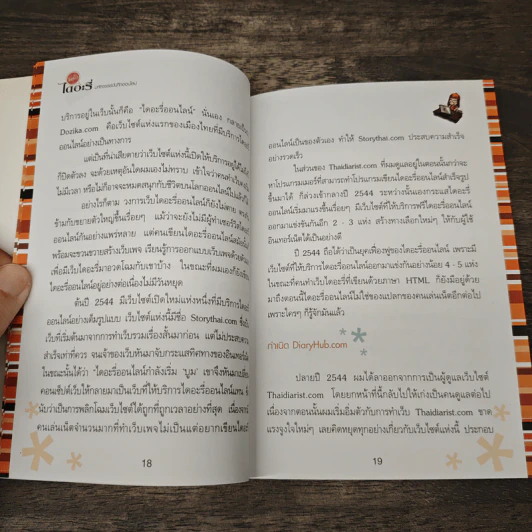 ไดอะรี่
บริการอยู่ในเว็บนั้นก็คือ "ไดอะรี่ออนไลน์" นั่นเอง
Dozika.com คือเว็บไซต์แห่งแรกของเมืองไทยที่มีบริการไดอะรี่
ออนไลน์อย่างเป็นทางการ
แต่เป็นที่น่าเสียดายว่าเว็บไซต์แห่งนี้เปิดให้บริการอยู่ได้ไม่
ก็ปิดตัวลง จะด้วยเหตุอันใดผมเองไม่ทราบ เข้าใจว่าคน
ไม่มีเวลา หรือไม่ก็อาจจะหมดสนุกกับชีวิตบนโลกออนไลน์ไปแล้วก็
อย่างไรก็ตาม วงการเว็บไดอะรี่ออนไลน์ก็ยังไม่ตาย
ข้ามกับขยายตัวใหญ่ขึ้นเรื่อยๆ แม้ว่าจะยังไม่มีผู้ทำ
ออนไลน์กันอย่างแพร่หลาย แต่คนเขียนไดอะรี่ออนไลน์
พร้อมจะชวนขวายสร้างเว็บเพจ เรียนรู้การออกแบบเว็บเพจด้วยตัวเอง
เพื่อมีเว็บไดอะรี่มาอวดโฉมกับเขาบ้าง ในขณะที่ผมเองก็ยังเขียน
ไดอะรี่ออนไลน์อยู่อย่างต่อเนื่องไม่มีวันหยุด
ต้นปี 2544 มีเว็บไซต์เปิดใหม่แห่งหนึ่งที่มีบริการไดอะรี่
ออนไลน์อย่างเต็มรูปแบบ เว็บไซต์แห่งนี้มีชื่อ Storythai.com ซึ่ง
เว็บที่เริ่มต้นมาจากการทำเว็บรวมเรื่องสั้นมาก่อน แต่ไม่ประสบความ
สำเร็จเท่าที่ควร จนเจ้าของเว็บหันมาจับกระแสทิศทางของอินเทอร์เน็ต
ในขณะนั้นได้ว่า "ไดอะรี่ออนไลน์กำลังเริ่ม 'บูม' เขาจึงหันมาเปลี่ยน
คอนเซ็ปต์เว็บให้กลายมาเป็นเว็บที่ให้บริการไดอะรี่ออนไลน์แทน
นับว่าเป็นการพลิกโฉมเว็บไซต์ได้ถูกที่ถูกเวลาอย่างที่สุด เนื่องจาก
คนเล่นเน็ตจำนวนมากที่ทำเว็บเพจไม่เป็นแต่อยากเขียนไดอะรี่
18
ออนไลน์เป็นของตัวเอง ทำให้ Storythai.com ประสบความสำเร็จ
อย่างรวดเร็ว
ในส่วนของ Thaidiarist.com ที่ผมดูแลอยู่ในตอนนั้นกว่าจะ
หาโปรแกรมเมอร์ที่สามารถทำโปรแกรมเขียนไดอะรี่ออนไลน์สำเร็จรูป
ขึ้นมาได้ ก็ล่วงเข้ากลางปี 2544 ระหว่างนั้นเองกระแสไดอะรี่
ออนไลน์เริ่มมาแรงขึ้นเรื่อยๆ มีเว็บไซต์ที่ให้บริการฟรีไดอะรี่ออนไลน์
ออกมาแข่งขันกันอีก 2 - 3 แห่ง สร้างทางเลือกใหม่ๆ ให้กับผู้ใช้
อินเทอร์เน็ตได้เป็นอย่างดี
ปี 2544 ถือได้ว่าเป็นยุคเฟื่องฟูของไดอะรี่ออนไลน์ เพราะมี
เว็บไซต์ที่ให้บริการไดอะรี่ออนไลน์ออกมาแข่งกันอย่างน้อย 4 - 5 แห่ง
ในขณะที่คนทำเว็บไดอะรี่ที่เขียนด้วยภาษา HTML ก็ยังมีอยู่ด้วย
มาถึงตอนนี้ไดอะรี่ออนไลน์ไม่ใช่ของแปลกของคนเล่นเน็ตอีกต่อไป
เพราะใครๆ ก็รู้จักมันแล้ว
กำเนิด DiaryHub.com
ปลายปี 2544 ผมได้ลาออกจากการเป็นผู้ดูแลเว็บไซต์
Thaidiarist.com โดยยกหน้าที่นี้กลับไปให้เก่งเป็นคนดูแลต่อไป
เนื่องจากตอนนั้นผมเริ่มอิ่มตัวกับการทำเว็บ Thaidiarist.com ขาด
แรงจูงใจใหม่ๆ เลยคิดหยุดทุกอย่างเกี่ยวกับเว็บไซต์แห่งนี้ ประกอบ
19